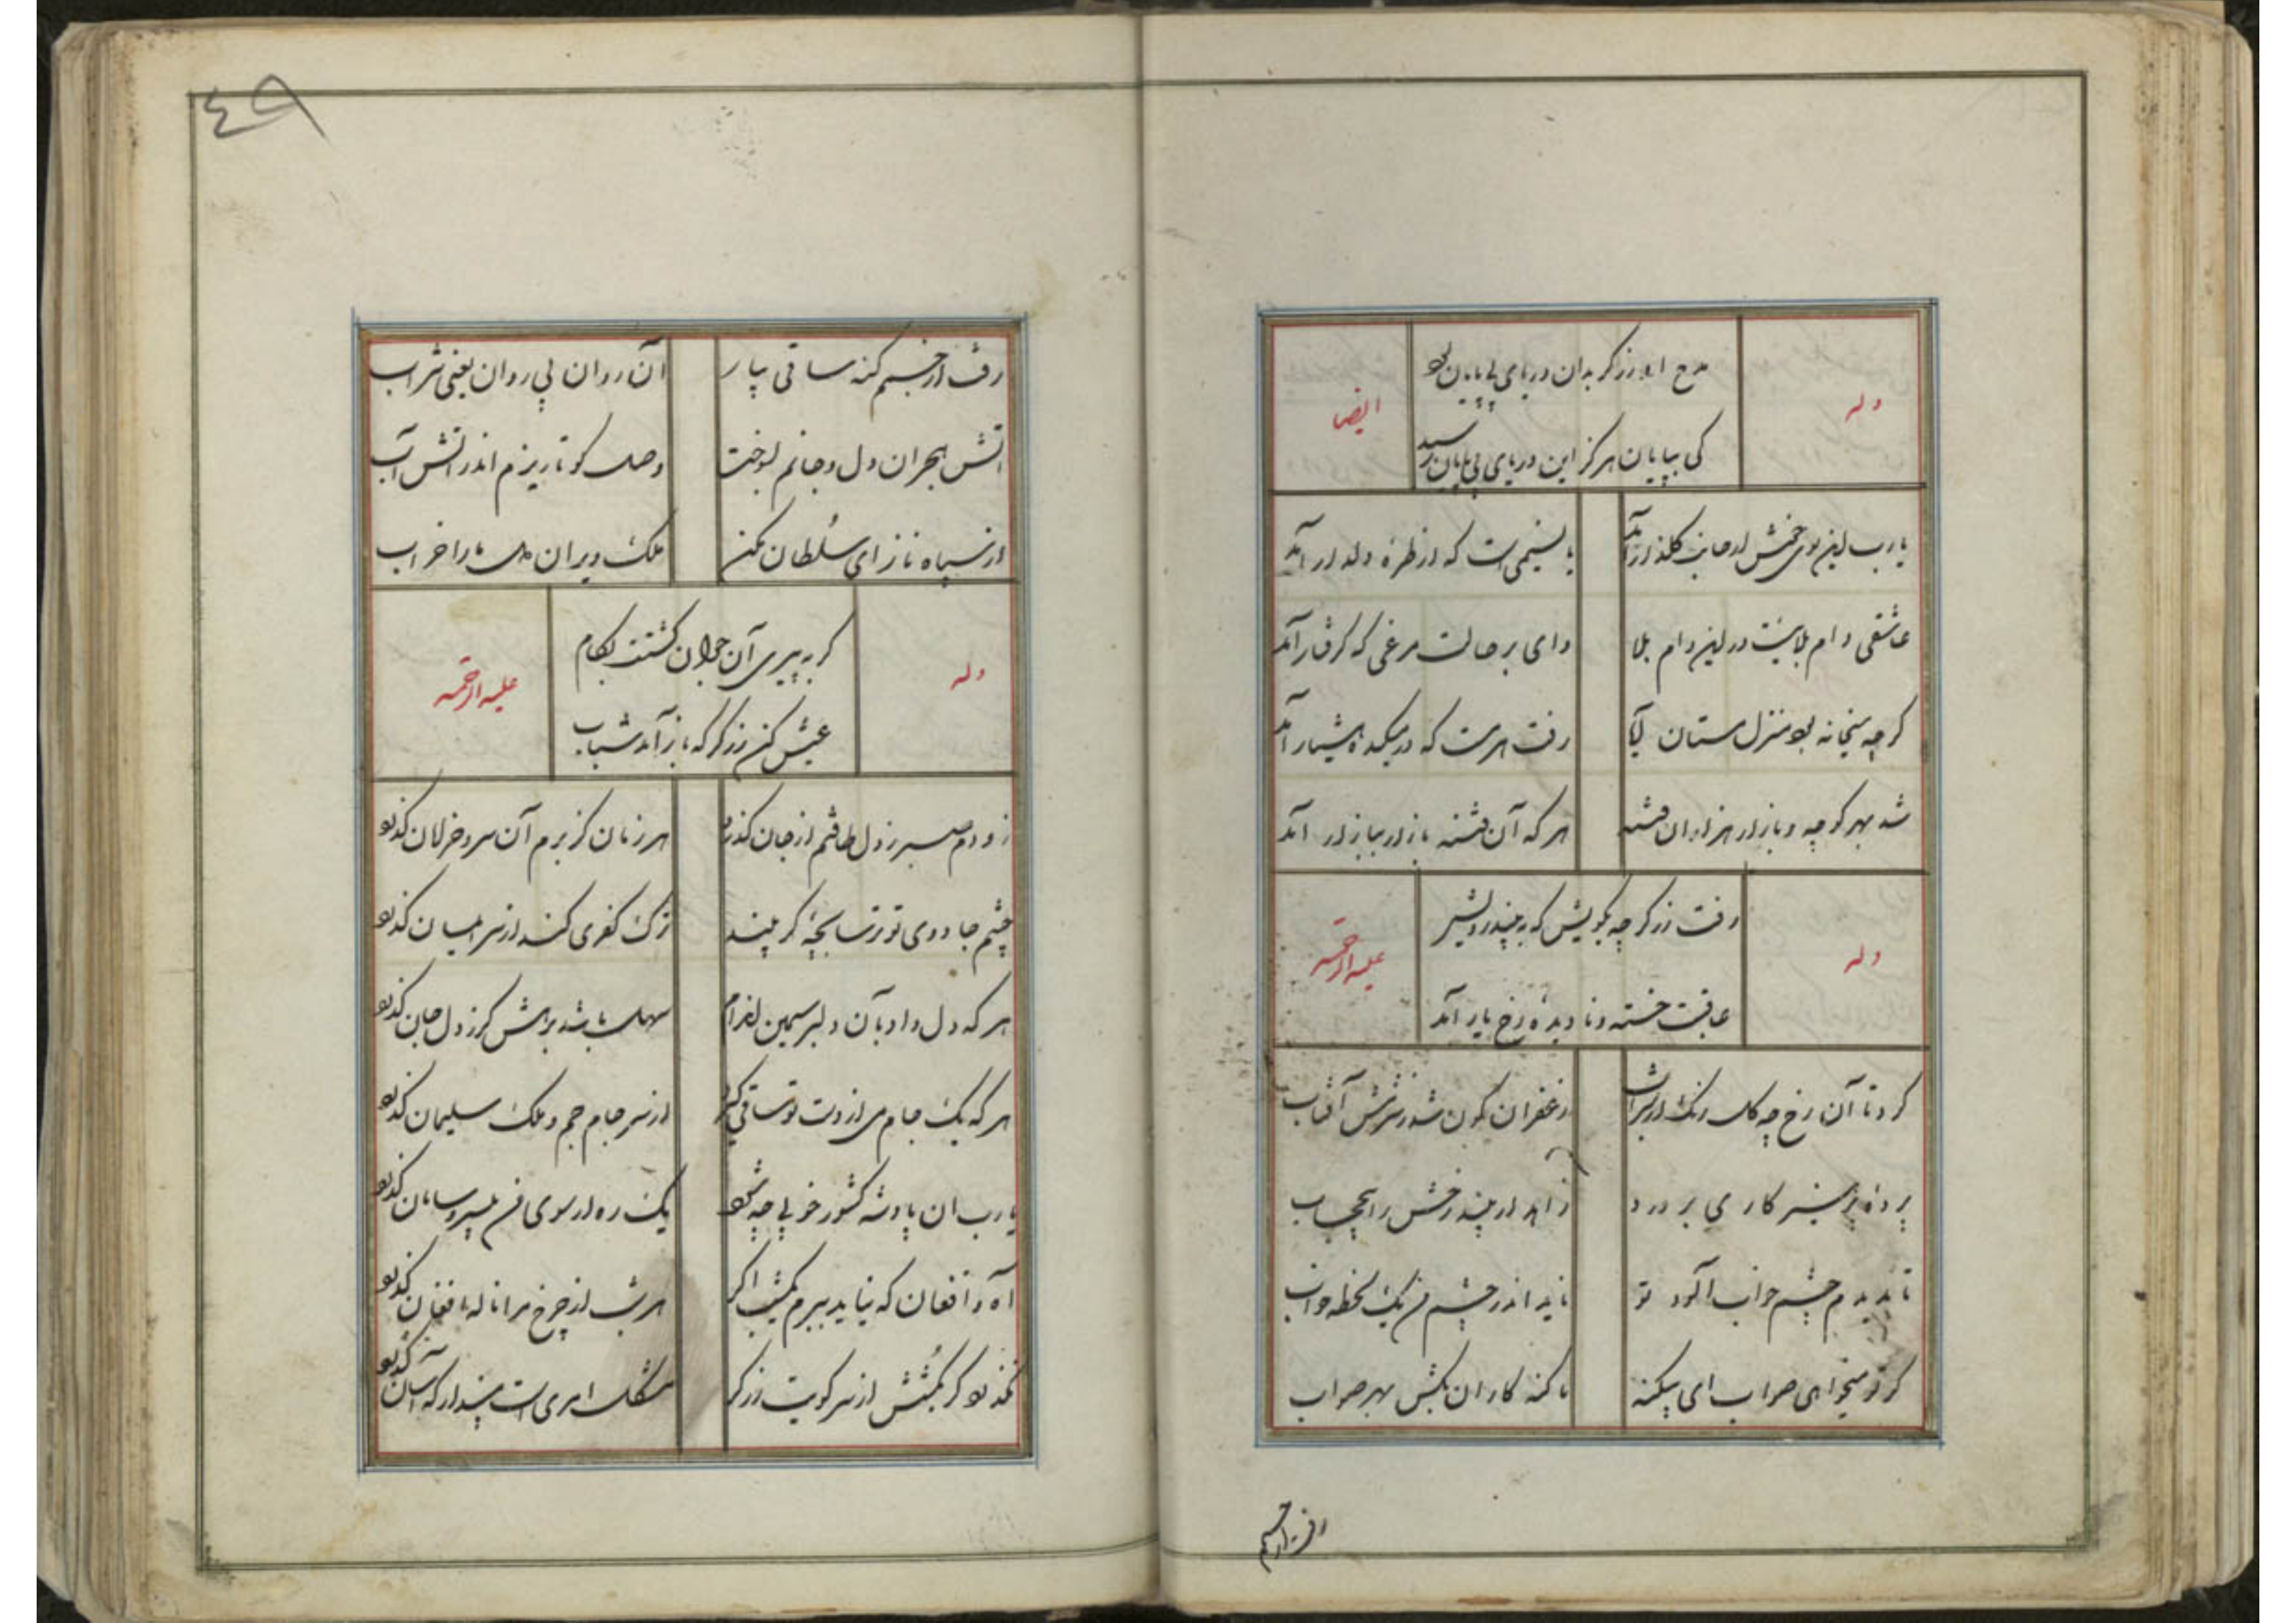 وله
ایضا
مدح او زرگر بدان دریای بی پایان بود
کی بپایان هرگز این دریای بی پایان رسید
یارب این بوی خوش از جانب گلزار آمد
یا نسیمی است که از طره دلدار آمد
عاشقی دام بلائیست در این دام بلا
وای بر حالت مرغی که گرفتار آمد
کرچه میخانه بود منزل مستان
رفت هر مست که در میکده هشیار آمد
شد بهر کوچه و بازار هزاران فتنه
هر که آن فتنه بازار ببازار آمد
وله
علیه الرحمه
رفت زرکر چه بکویش که ببیند رویش
عاقبت خسته و نادیده رخ یار آمد
کرد تا آن رخ چه کل رنک از شراب
زعفران کون شد ز شرمش آفتاب
پرده پرهیز کار می بر درد
زاهد ار بیند رخش را بیحجاب
تا بدیدم چشم خواب آلود تو
ناید اندر چشم من یک لحظه خواب
کر تو میخواهی صواب ای بیکنه
با کنه کاران بکش بهر صواب
رفت از جسم
٤٩
رفت از جسم کنه ساقی بیار
آن روان بی روان یعنی شراب
آتش هجران دل و جانم بسوخت
وصل کو تا ریزم اندر آتش آب
از سپاه ناز ای سلطان مکن
ملک ویران دل ما را خراب
وله
علیه الرحمه
کر به پیری آن جوان کشتت بکام
عیش کن زرکر که باز آمد شباب
زودم صبر ز دل طاقتم از جان کذرد
هر زمان کز برم آن سرو خرامان کذرد
چشم جادوی تو ترسابچه کر بیند
ترک کفری کند از سر ایمان کذرد
هر که دل داد بآن دلبر سیمین اندام
سهل باشد برهش کر ز دل جان کذرد
هر که یک جام می از دست تو ساقی کیرد
از سر جام جم و ملک سلیمان کذرد
یارب ان پادشه کشور خوبی چه شود
یک ره ار سوی من بیسر و سامان کذرد
آه و افغان که نیاید ببرم یکشب اکر
هر شب از چرخ مرا ناله و افغان کذرد
نکذرد کر بکشتش از سر کویت زرکر
مشکل امری است مپندار که آسان کذرد